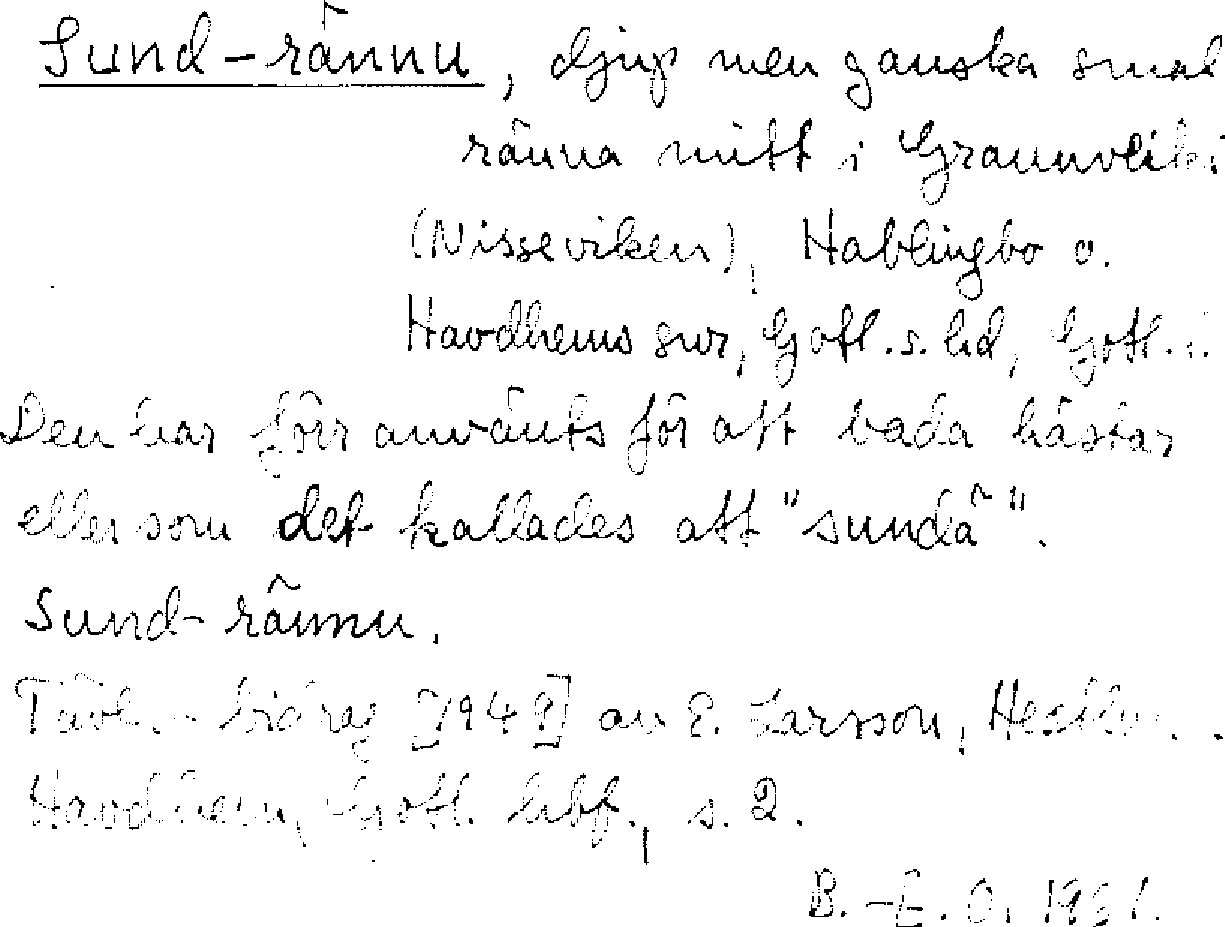 Sund-rännu, djup men ganska smal
ränna mitt i Graunvleiki
(Nisseviken), Hablingbo o.
Havdhems snr, Gotl. s. hd, Gotl. l.
Den har förr använts för att bada hästar
eller som det kallades att "sundä".
Sund-rännu.
Tävl.-bidrag [1948] av E. Larsson,
Havdhem, Gotl. hbf., s. 2.
B.-E. O. 1961.